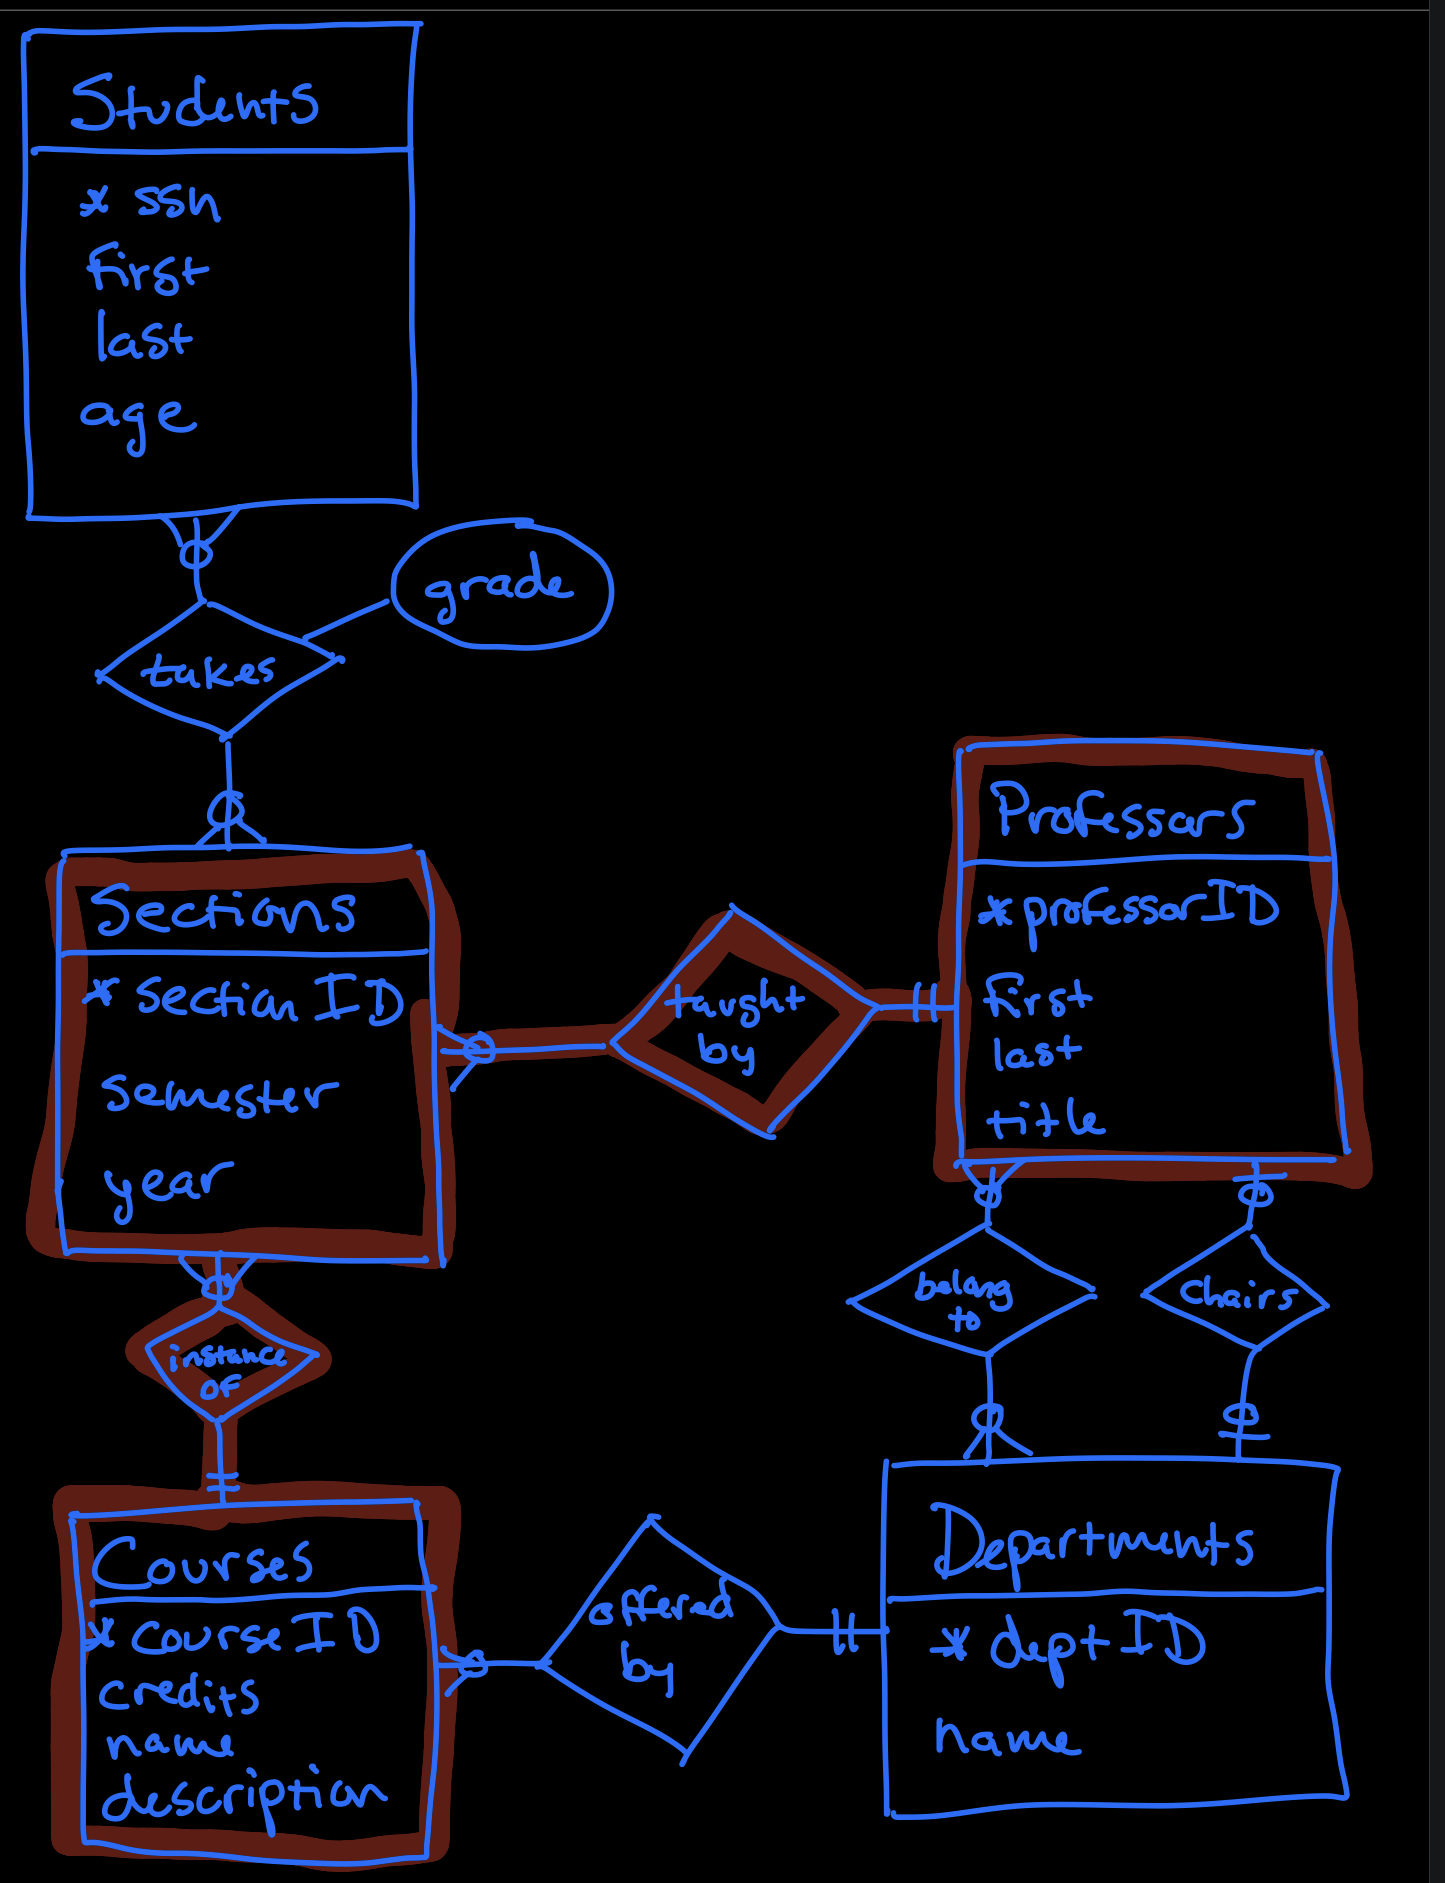 Students
* ssn
first
last
age
grade
takes
Sections
* section ID
semester
year
taught
by
Professors
* professorID
first
last
title
instance
of
belong
to
chairs
Courses
* course ID
credits
name
description
offered
by
Departments
* dept ID
name